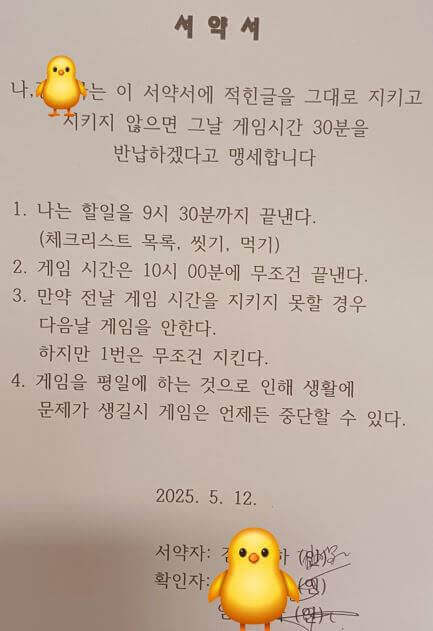 서약서
나, 는 이 서약서에 적힌글을 그대로 지키고
지키지 않으면 그날 게임시간 30분을
반납하겠다고 맹세합니다
1. 나는 할일을 9시 30분까지 끝낸다.
(체크리스트 목록, 씻기, 먹기)
2. 게임 시간은 10시 00분에 무조건 끝낸다.
3. 만약 전날 게임 시간을 지키지 못할 경우
다음날 게임을 안한다.
하지만 1번은 무조건 지킨다.
4. 게임을 평일에 하는 것으로 인해 생활에
문제가 생길시 게임은 언제든 중단할 수 있다.
2025. 5. 12.
서약자: (인)
확인자: (인)
(인)